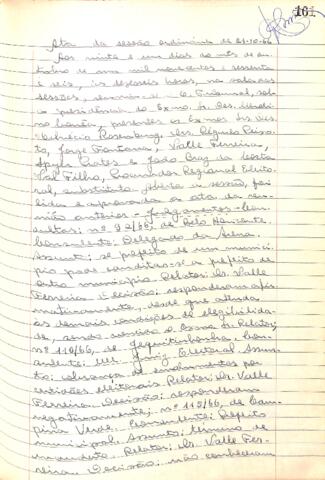 161
Ata da sessão ordinária de 21-10-66
Aos vinte e um dias do mês de ou-
tubro de mil novecentos e sessenta
e seis, às dezesseis horas, na sala das
sessões, reuniu-se o E. Tribunal, sob
a presidência do Exmo. Sr. Des.
presentes os Exmos. Srs. Drs.
Rosenburg, Drs. Régulo Peixo-
to, Jorge Fontana, Valle Ferreira,
Prates e João Braz da Costa
Val Filho, Procurador Regional Eleito-
ral, substituto. Aberta a sessão, foi
lida e aprovada a ata da reu-
nião anterior - Julgamentos - Con-
sultas: nº 92/66, de Belo Horizonte.
Consulente: Delegado da Arena.
Assunto: se prefeito de um municí-
pio pode candidatar-se a prefeito de
outro município. Relator: Dr. Valle
Ferreira. Decisão: responderam afir-
mativamente, desde que atenda
as demais condições de elegibilida-
de, sendo o Exmo. Sr. Relator;
nº 114/66, de Jequitinhonha. Con-
sulente: MM. Juiz Eleitoral. Assun-
to: cobrança de emolumentos por
certidões eleitorais. Relator: Dr. Valle
Ferreira. Decisão: responderam
negativamente; nº 115/66, de Cam-
pina Verde. Consulente: Prefeito
municipal. Assunto: término de
mandato. Relator: Dr. Valle Fer-
reira. Decisão: não conheceram